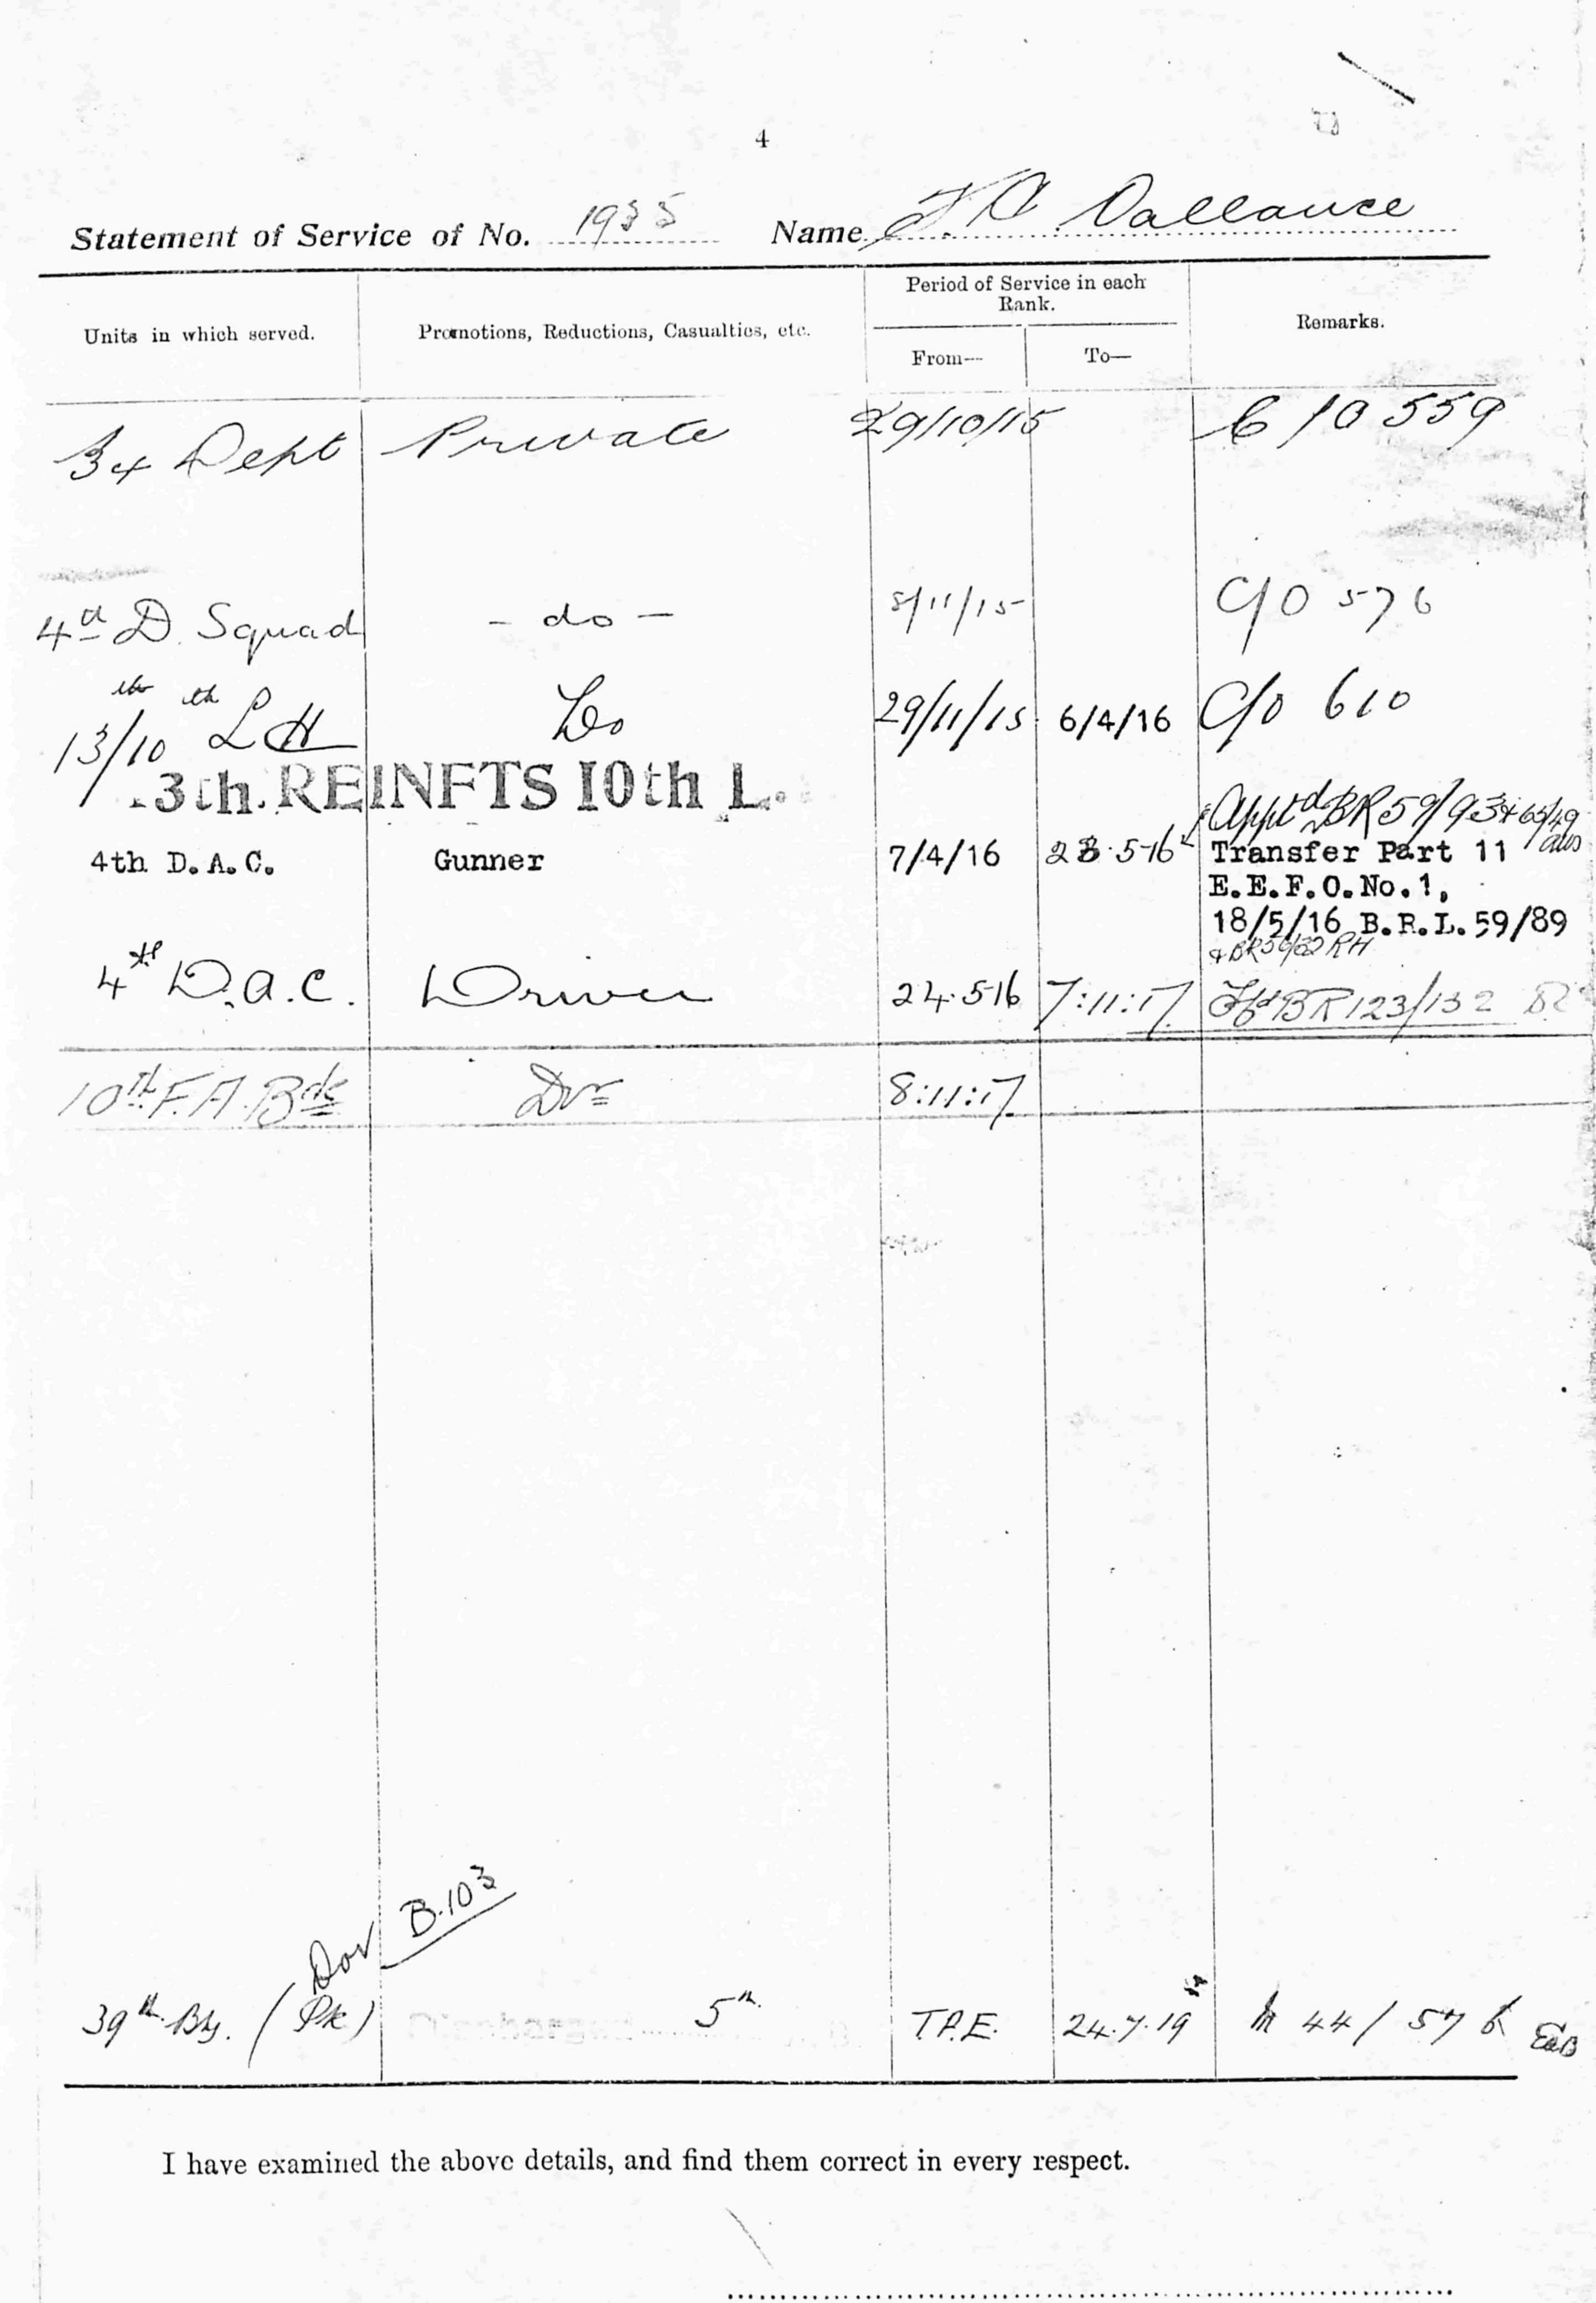 4
Statement of Service of No. 1935 Name J A Vallance
Units in which served. Promotions, Reductions, Casualties, etc. Period of Service in each Rank. From— To— Remarks.
34 Dept Private 29/10/15 C/O 559
4th D. Squad - do - 8/11/15 C/O 576
13th/10th L H Do 29/11/15 6/4/16 C/O 610
3th. REINFTS 10th L.
Apptd BR 59/93 & 65/49
4th D.A.C. Gunner 7/4/16 23.5.16 Transfer Part 11
E.E.F.O.No.1,
18/5/16 B.R.L.59/89
& BR 59/32 RH
4th D.A.C. Driver 24.5.16 7:11:17 Tfd BR 123/132
10th F.A. Bde Dvr 8:11:17
Dvr B.103
39th Bty. (Pk) 5th T.P.E. 24.7.19 44/576 EaB
I have examined the above details, and find them correct in every respect.